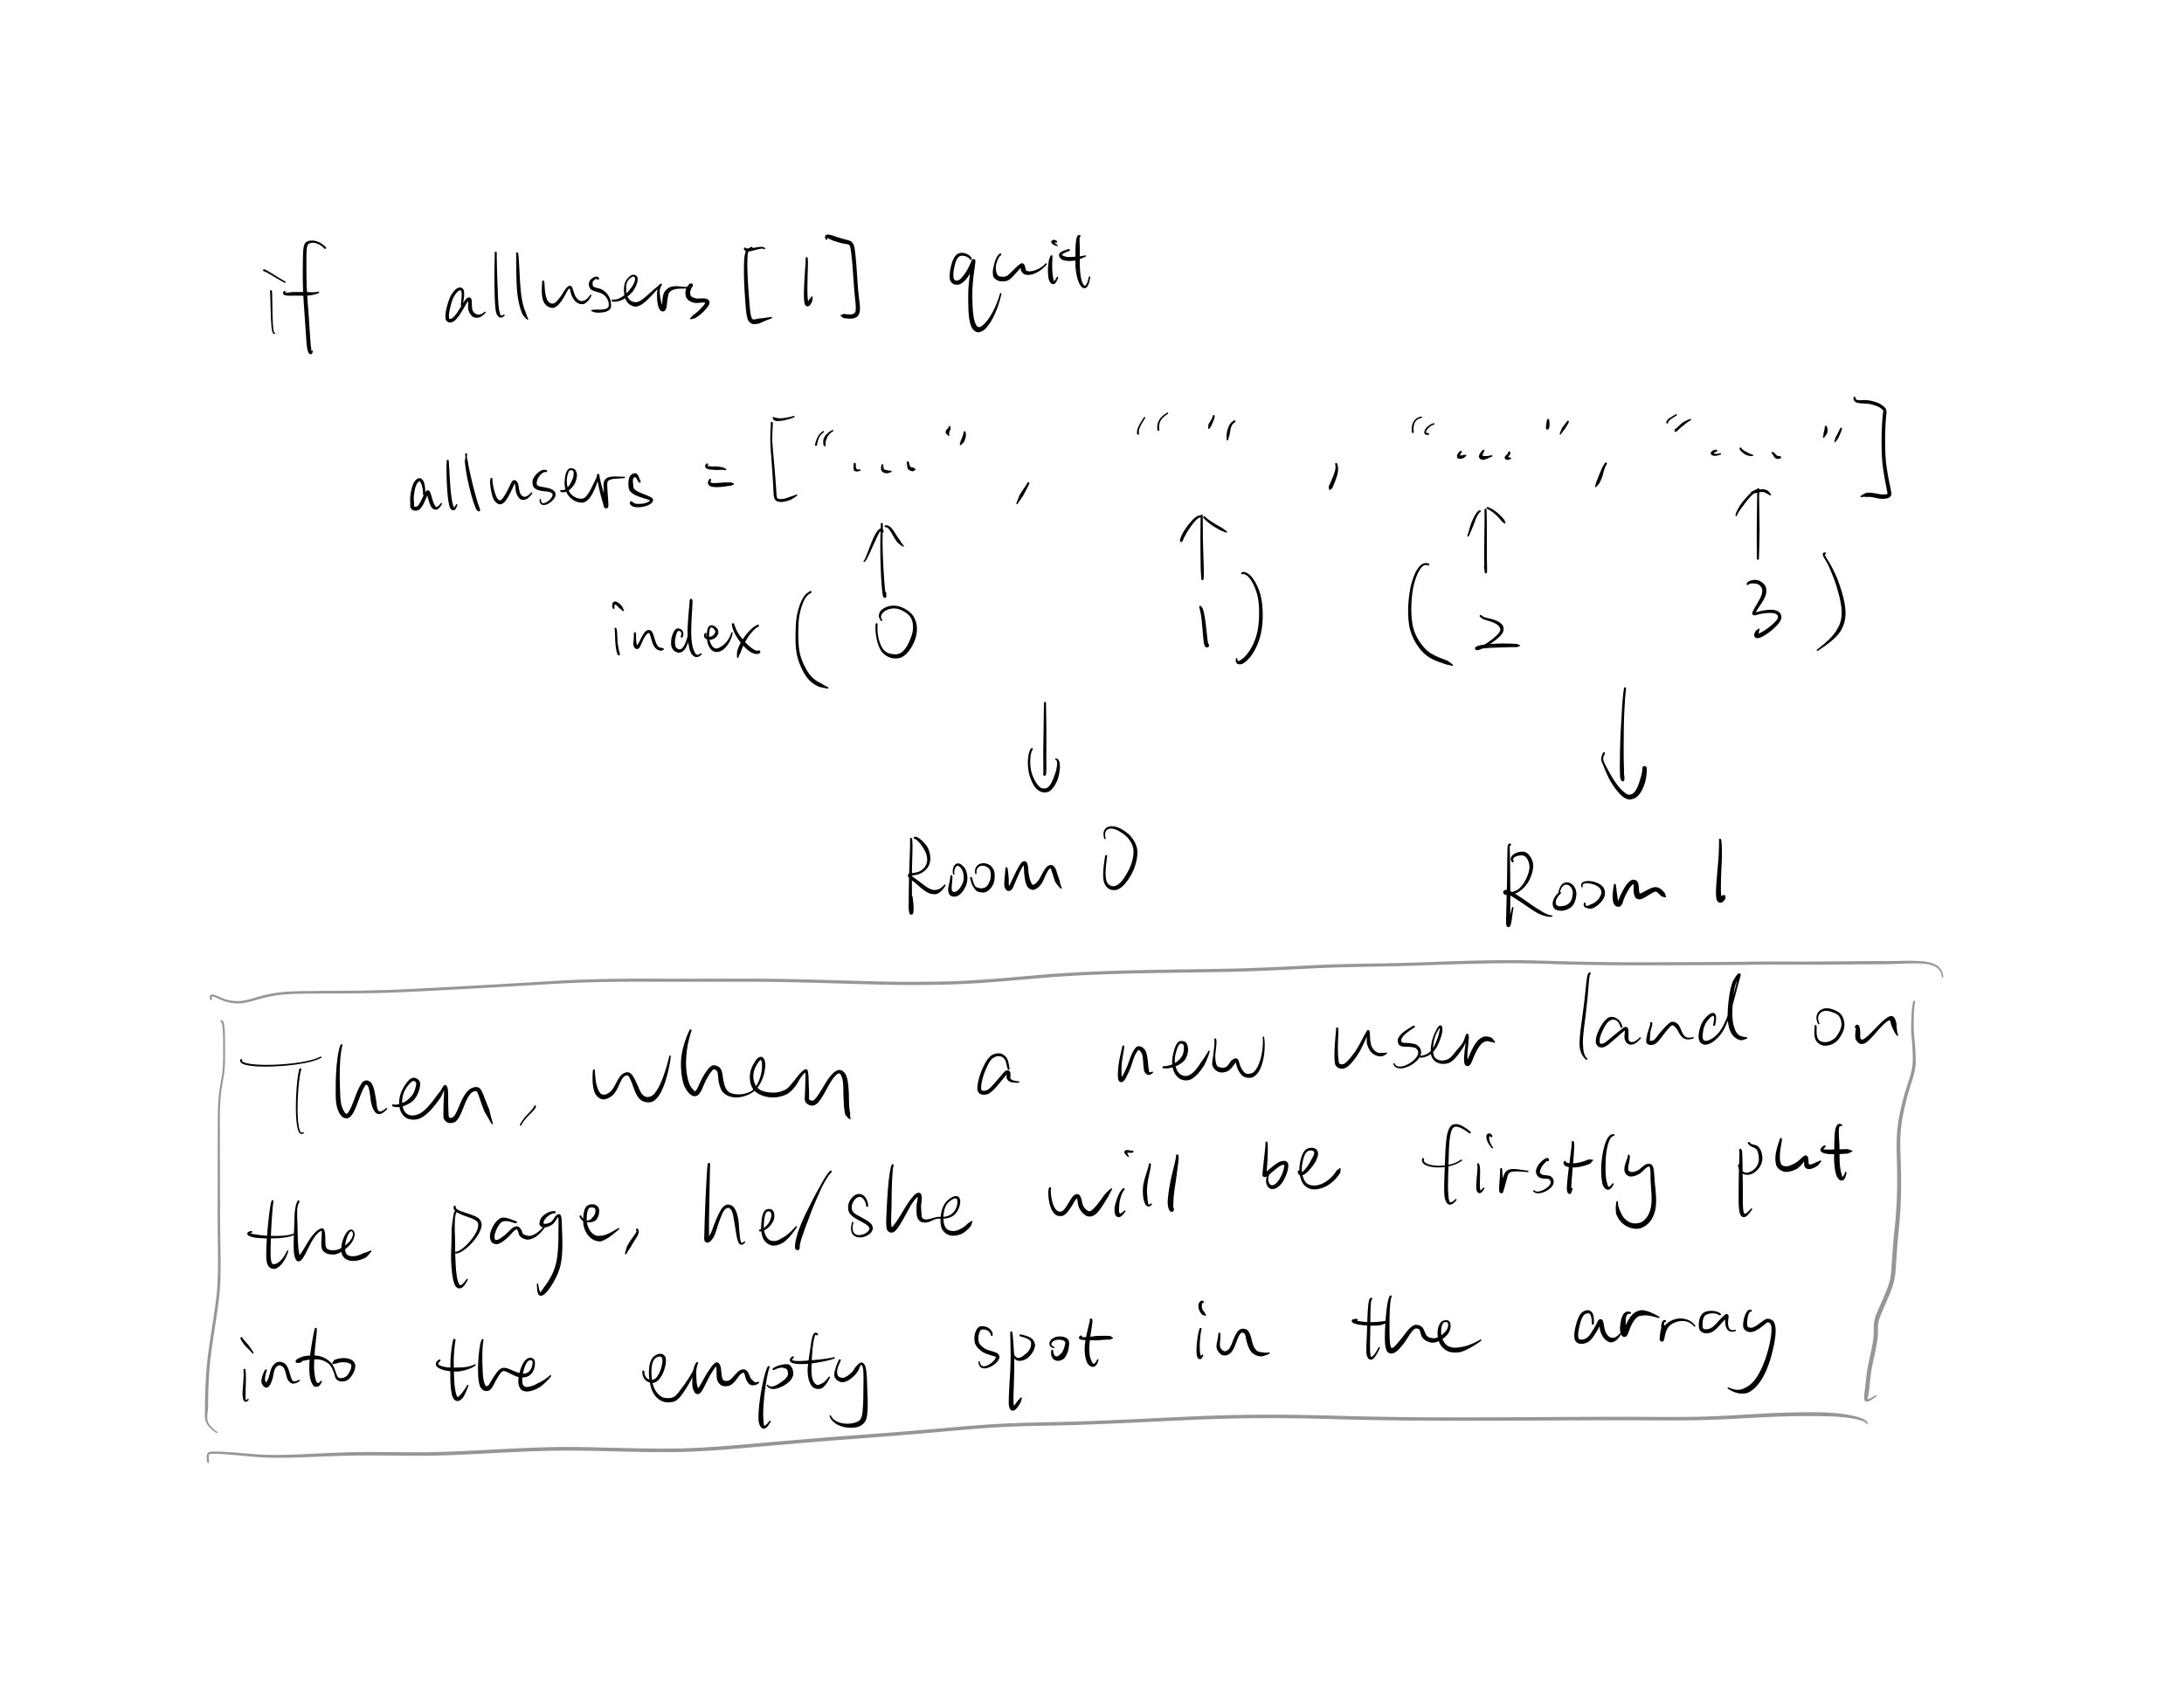 if allusers [1] quit
allusers = ["...", "", "...", "..."]
index (0 1) (2 3)
Room 0 Room 1
Then, when a new user land on
the page, he/she will be firstly put
into the empty spot in the array